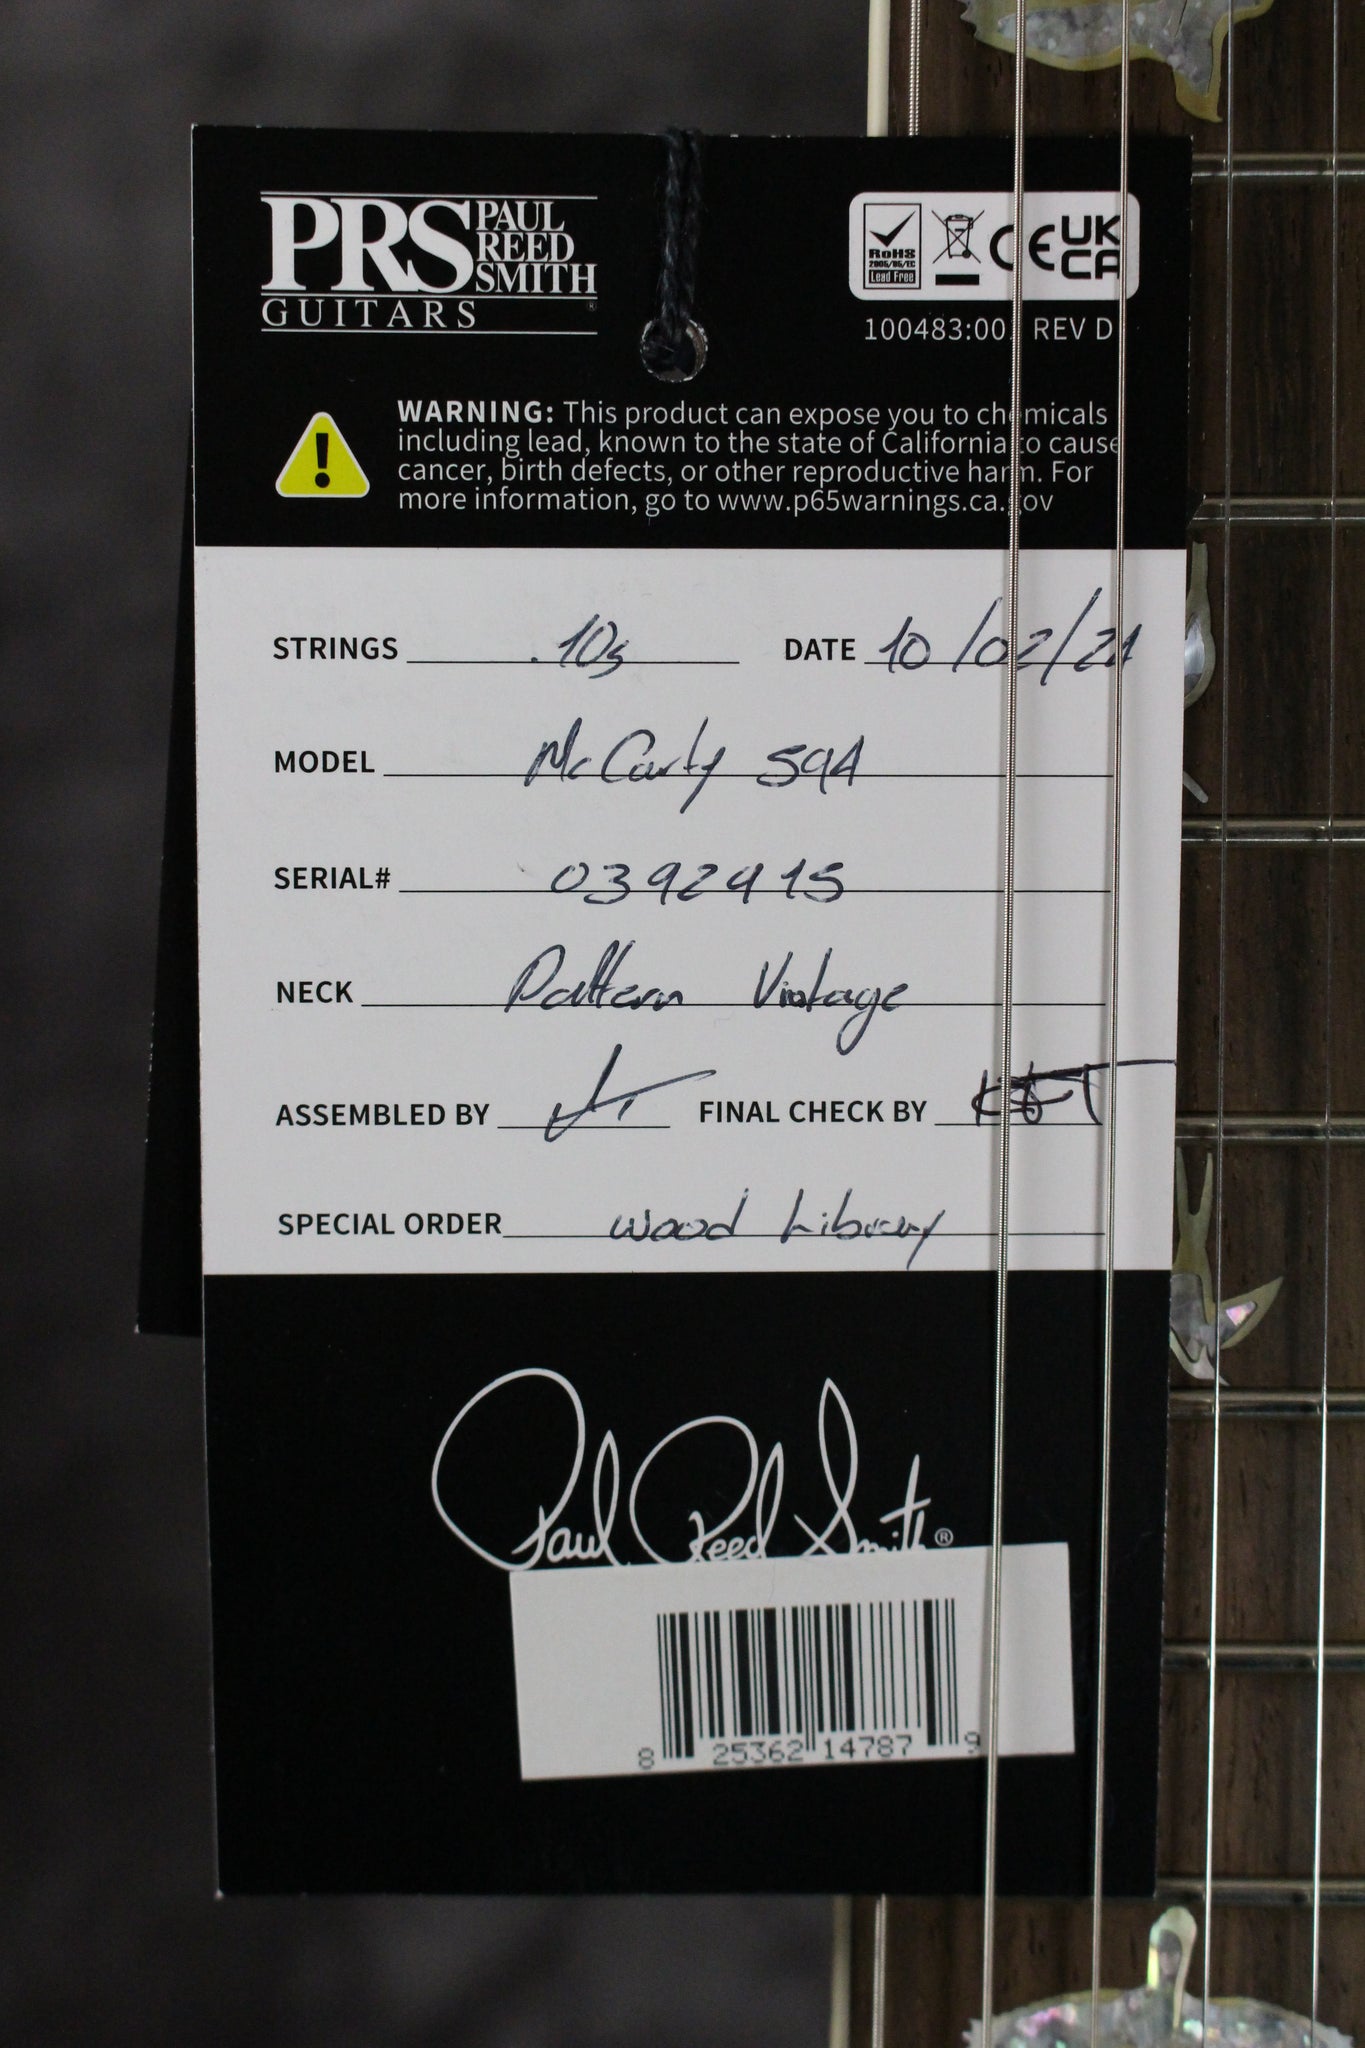 PRS PAUL REED SMITH ®
GUITARS
RoHS
2005/95/EC
Lead Free
CE UK CA
100483:00 REV D
WARNING: This product can expose you to chemicals
including lead, known to the state of California to cause
cancer, birth defects, or other reproductive harm. For
more information, go to www.p65warnings.ca.gov
STRINGS .10s DATE 10/02/24
MODEL McCarty 594
SERIAL# 0392915
NECK Pattern Vintage
ASSEMBLED BY FINAL CHECK BY
SPECIAL ORDER Wood Library
Paul Reed Smith ®
8 25362 14787 9